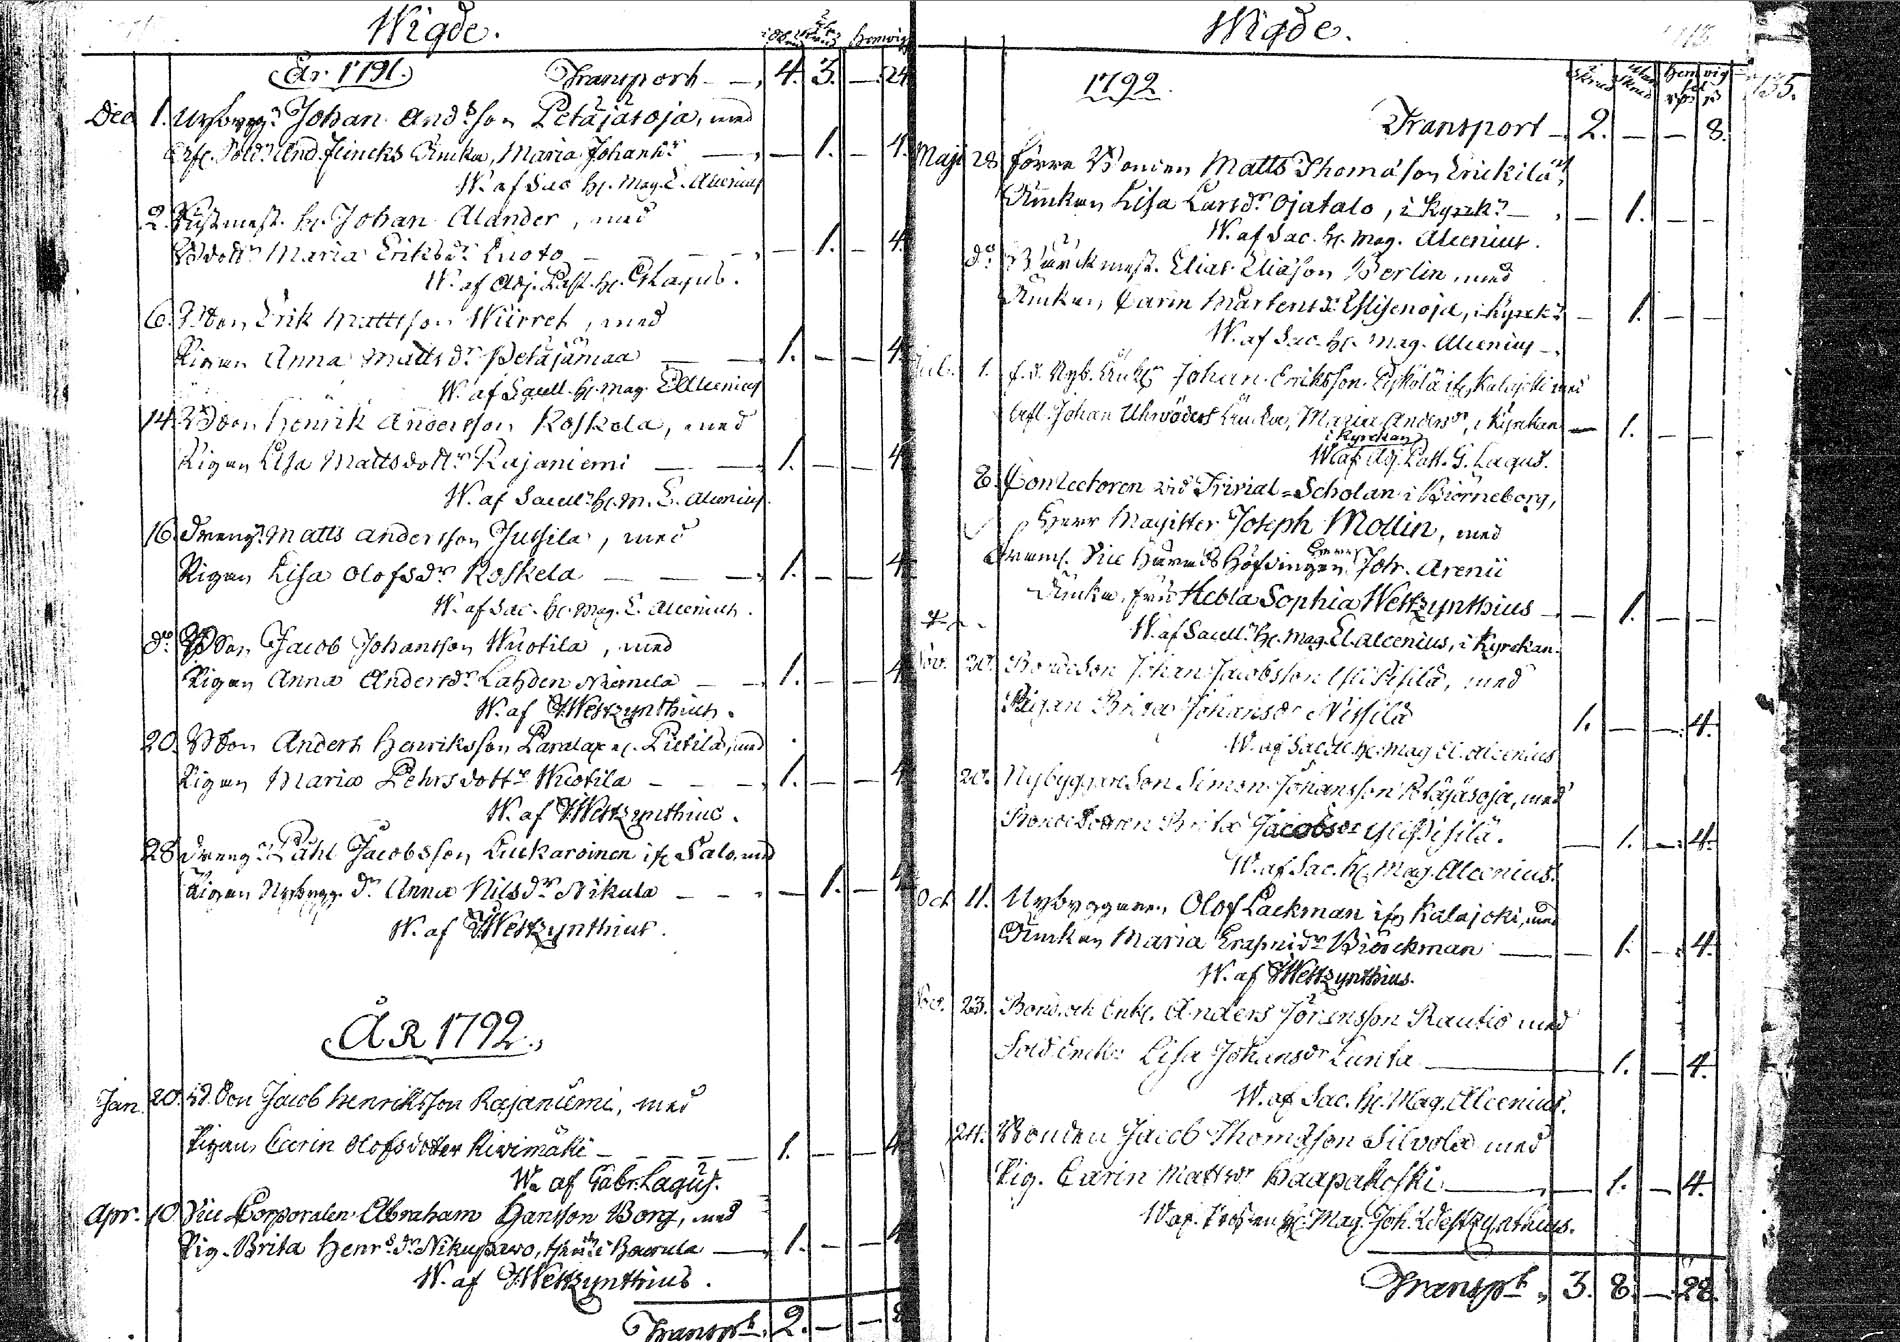 Wigde.
År 1791. Transport 4. 3. 24
Dec. 1. Nybygg. Johan And.son Petäjäsoja, med
Sold. And. Flincks Änka, Maria Johans 1. 4.
W. af Sac. H. Mag. E. Alcenius
2. H. Johan Alander, med
Maria Eriksdr Luoto 1. 4.
W. af Adj. Past. H. G. Lagus.
6. Bdson Erik Mattsson Wiirret, med
Pigan Anna Mattsdr Petäjämaa 1. 4
W. af Sacell. H. Mag. E. Alcenius
14. Bdson Henrik Andersson Koskela, med
Pigan Lisa Mattsdottr Rajaniemi 1. 4
W. af Sacell. H. M. E. Alcenius.
16. Dreng. Matts Andersson Jussila, med
Pigan Lisa Olofsdr Koskela 1. 4
W. af Sac. H. Mag. E. Alcenius.
do Bdson Jacob Johansson Wuotila, med
Pigan Anna Andersdr Lahden Niemela 1. 4
W. af J. Westzynthius.
20. Bdson Anders Henriksson Pietilä, med
Pigan Maria Pehrsdottr Wuotila 1. 4
W. af J. Westzynthius.
28 Dreng. Påhl Jacobsson Luckaroinen if. Salo, med
Pigan Nybygg. Dr Anna Nilsdr Nikula 1. 4
W. af J. Westzynthius.
ÅR 1792.
Jan. 20. Bdson Jacob Henriksson Rajaniemi, med
Pigan Carin Olofsdotter Kivimäki 1. 4
W. af Gabr. Lagus.
Apr. 10 Vice Corporalen Abraham Hansson Borg, med
Pig. Brita Henrsdr Nikupawo, 1. 4
W. af J. Westzynthius.
Transpt. 2. 8
Wigde.
1792. 135.
Transport 2. 8.
Maji 28 förre Bonden Matts Thomasson Erickilä,
Änkan Lisa Larsdr Ojatalo, i Kyrk. 1.
W. af Sac. H. Mag. Alcenius.
do Elias Eliasson Berlin, med
Änkan Carin Mårtensdr Ylisenoja, i Kyrk. 1.
W. af Sac. H. Mag. Alcenius
Jul. 1. f.d. Nyb. Änkl. Johan Eriksson if. Kalajoki med
Johan Uhrvöders Änka, Maria Andersdr, i Kyrckan 1.
i Kyrckan
W. af Adj. Past. G. Lagus.
8. Conrectoren vid Trivial=Scholan i Biörneborg,
Herr Magister Joseph Mollin, med
Framl. Vice Härads Höfdingen Herr Joh. Arenii
Änka, fru Hebla Sophia Westzynthius 1.
W. af Sacell. H. Mag. El. Alcenius, i Kyrckan.
Nov. 20. BondeSon Johan Jacobsson Ylipisilä, med
Pigan Brita Johansdr Nissilä 1. 4.
W. af Sacell. H. Mag. El. Alcenius
20. NybyggareSon Simon Johansson Petäjäsoja, med
BondeDottren Brita Jacobsdr Ylipisilä. 1. 4.
W. af Sac. H. Mag. Alcenius.
Oct 11. Nybyggaren Olof Lackman ifr. Kalajoki, med
Änckan Maria Erasmidr Biörckman 1. 4.
W. af J. Westzynthius.
23. Bond. och Enkl. Anders Göransson Rautio med
Sold. Enck. Lisa Johansdr Lunta 1. 4.
W. af Sac. H. Mag. Alcenius.
24. Bonden Jacob Thomasson Silvola med
Pig. Carin Mattsdr Haapakoski 1. 4.
W. af H. Mag. Joh. Westzynthius.
Transpt. 3. 8. 28.